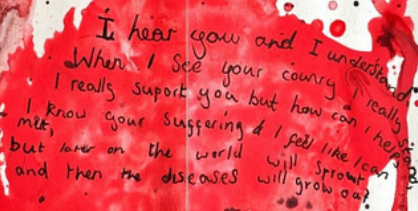 I hear yow and I understand
When I see your counry I really
I really suport you but how can i help
I know your suffering & I feel like I can
melt,
but later on the world will sprout
and then the diseases will grow out